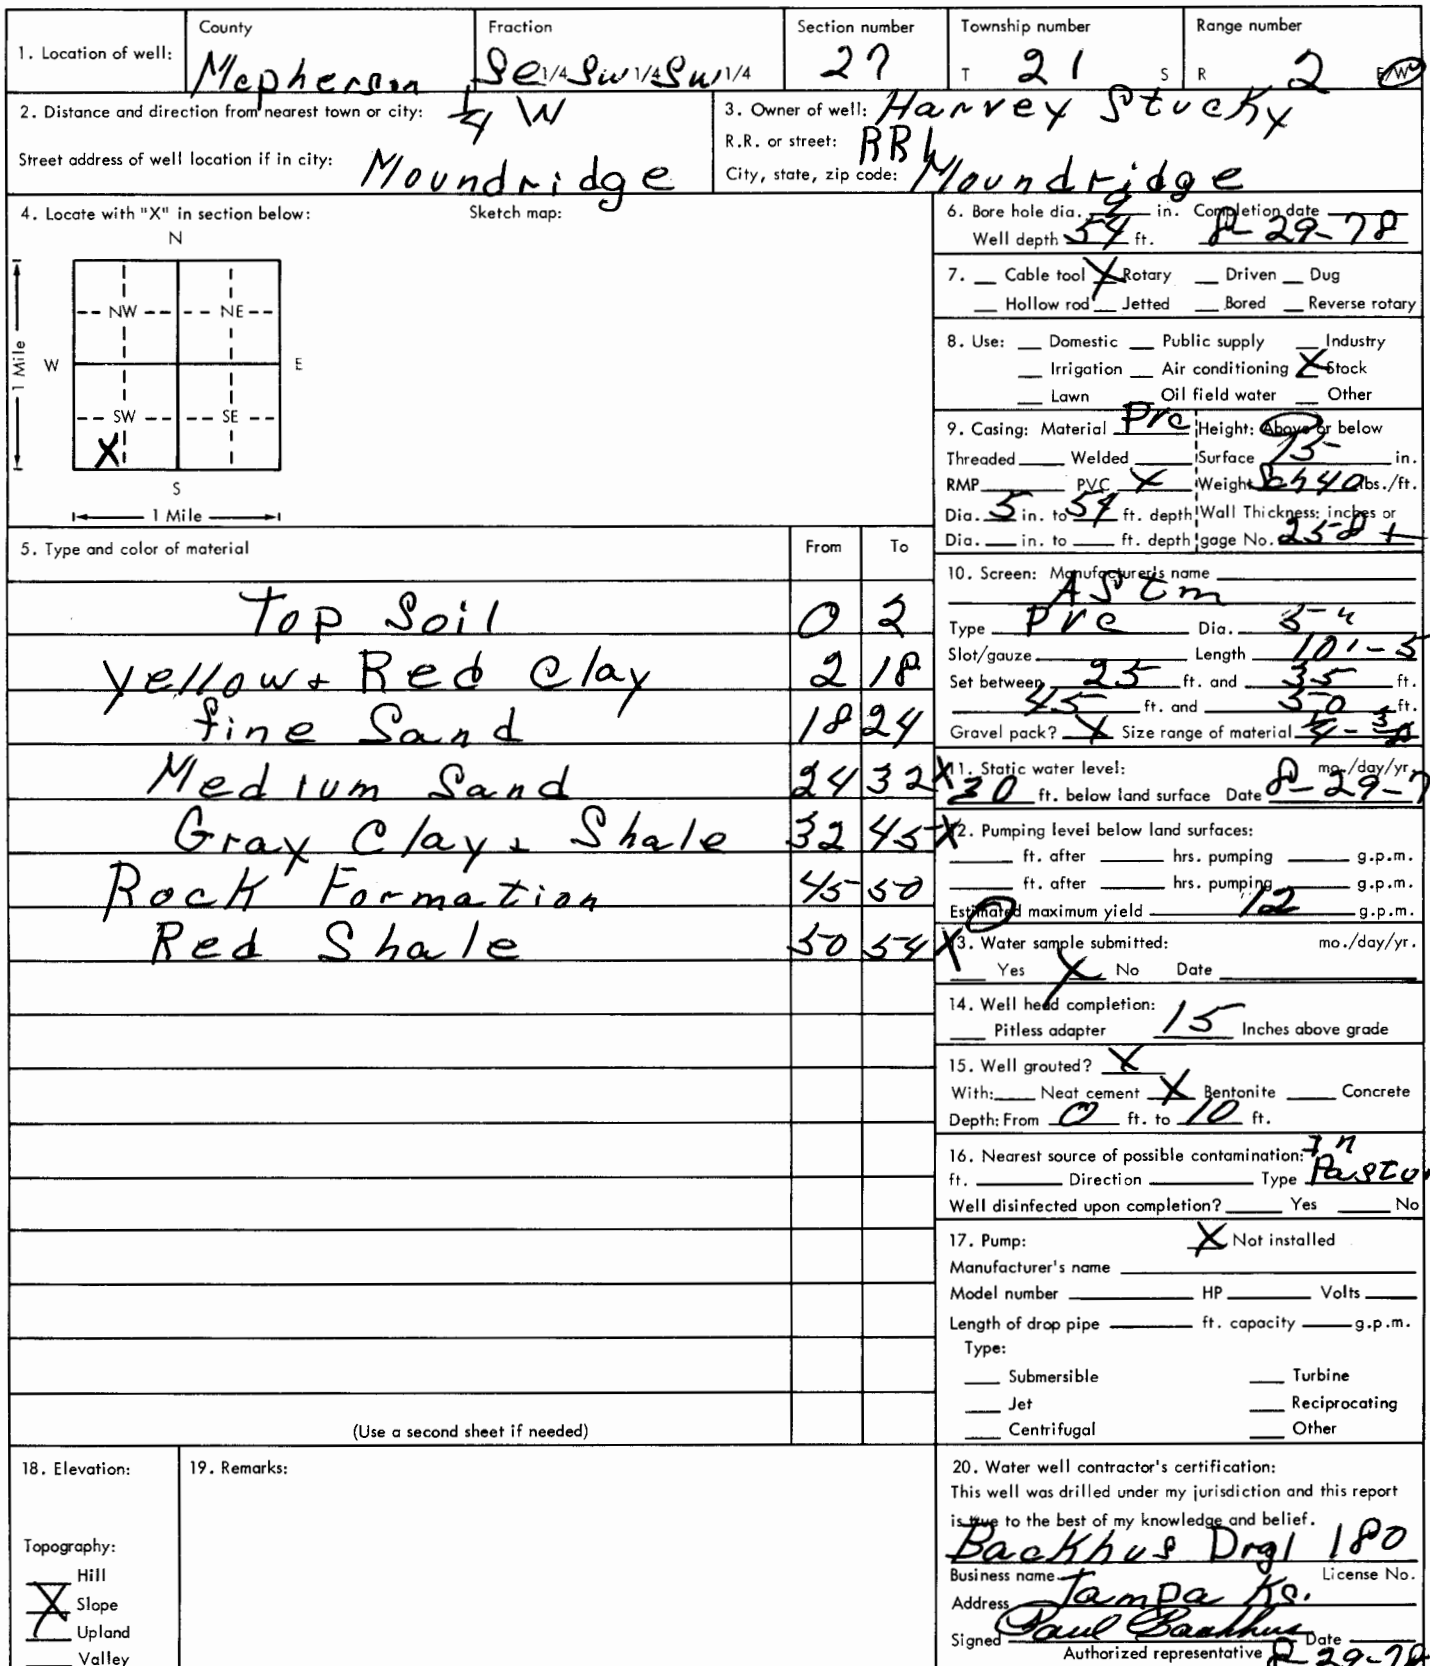 1. Location of well: County Mcpherson Fraction Se 1/4 Sw 1/4 Sw 1/4 Section number 27 Township number T 21 S Range number R 2 E/W
2. Distance and direction from nearest town or city: 1/4 W
Street address of well location if in city: Moundridge
3. Owner of well: Harvey Stucky
R.R. or street: RR1
City, state, zip code: Moundridge
4. Locate with "X" in section below: Sketch map:
N
NW NE
W E
1 Mile
SW SE
X
S
1 Mile
5. Type and color of material From To
Top Soil 0 2
yellow + Red Clay 2 18
fine Sand 18 24
Medium Sand 24 32
Gray Clay + Shale 32 45
Rock Formation 45 50
Red Shale 50 54
(Use a second sheet if needed)
6. Bore hole dia. in. Completion date
Well depth 54 ft. 8-29-78
7. Cable tool X Rotary Driven Dug
Hollow rod Jetted Bored Reverse rotary
8. Use: Domestic Public supply Industry
Irrigation Air conditioning X Stock
Lawn Oil field water Other
9. Casing: Material PVC Height: Above or below
Threaded Welded Surface 15 in.
RMP PVC X Weight Sch 40 lbs./ft.
Dia. 5 in. to 54 ft. depth Wall Thickness: inches or
Dia. in. to ft. depth gage No. 258 +
10. Screen: Manufacturer's name
ASTM
Type PVC Dia. 5"
Slot/gauze Length 10'-5
Set between 25 ft. and 35 ft.
45 ft. and 50 ft.
Gravel pack? X Size range of material 1/4 - 3/8
X 11. Static water level: mo./day/yr.
30 ft. below land surface Date 8-29-7
X 12. Pumping level below land surfaces:
ft. after hrs. pumping g.p.m.
ft. after hrs. pumping g.p.m.
Estimated maximum yield 12 g.p.m.
X 13. Water sample submitted: mo./day/yr.
Yes X No Date
14. Well head completion:
Pitless adapter 15 Inches above grade
15. Well grouted? X
With: Neat cement X Bentonite Concrete
Depth: From 0 ft. to 10 ft.
16. Nearest source of possible contamination: In
ft. Direction Type Pastur
Well disinfected upon completion? Yes No
17. Pump: X Not installed
Manufacturer's name
Model number HP Volts
Length of drop pipe ft. capacity g.p.m.
Type:
Submersible Turbine
Jet Reciprocating
Centrifugal Other
18. Elevation:
Topography:
Hill
X Slope
Upland
Valley
19. Remarks:
20. Water well contractor's certification:
This well was drilled under my jurisdiction and this report
is true to the best of my knowledge and belief.
Backhus Drgl 180
Business name License No.
Address Tampa Ks.
Signed Paul Backhus Date
Authorized representative 8-29-78